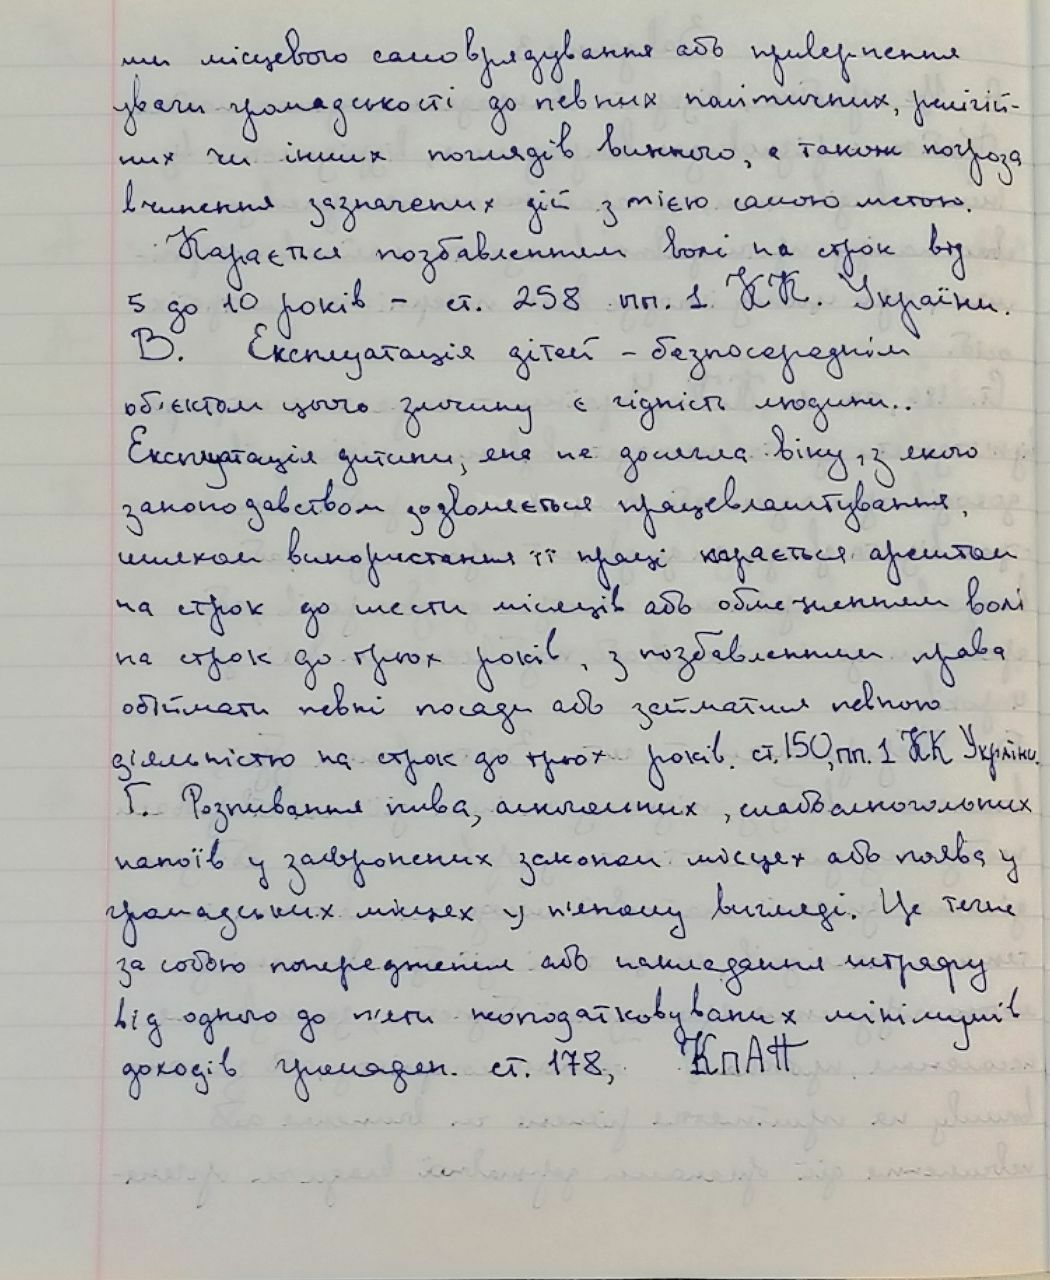 ми місцевого самоврядування або привернення
уваги громадськості до певних політичних, релігій-
них чи інших поглядів винного, а також погроза
вчинення зазначених дій з тією самою метою.
Карається позбавленням волі на строк від
5 до 10 років - ст. 258 пп. 1 КК. України.
В. Експлуатація дітей - безпосереднім
об'єктом цього злочину є гідність людини..
Експлуатація дитини, яка не досягла віку, з якого
законодавством дозволяється працевлаштування,
шляхом використання її праці карається арештом
на строк до шести місяців або обмеженням волі
на строк до трьох років, з позбавленням права
обіймати певні посади або займатися певною
діяльністю на строк до трьох років. ст. 150, пп. 1 КК України.
Г. Розпивання пива, алкогольних, слабоалкогольних
напоїв у заборонених законом місцях або поява у
громадських місцях у п'яному вигляді. Це тягне
за собою попередження або накладання штрафу
від одного до п'яти неоподатковуваних мінімумів
доходів громадян. ст. 178, КпАП